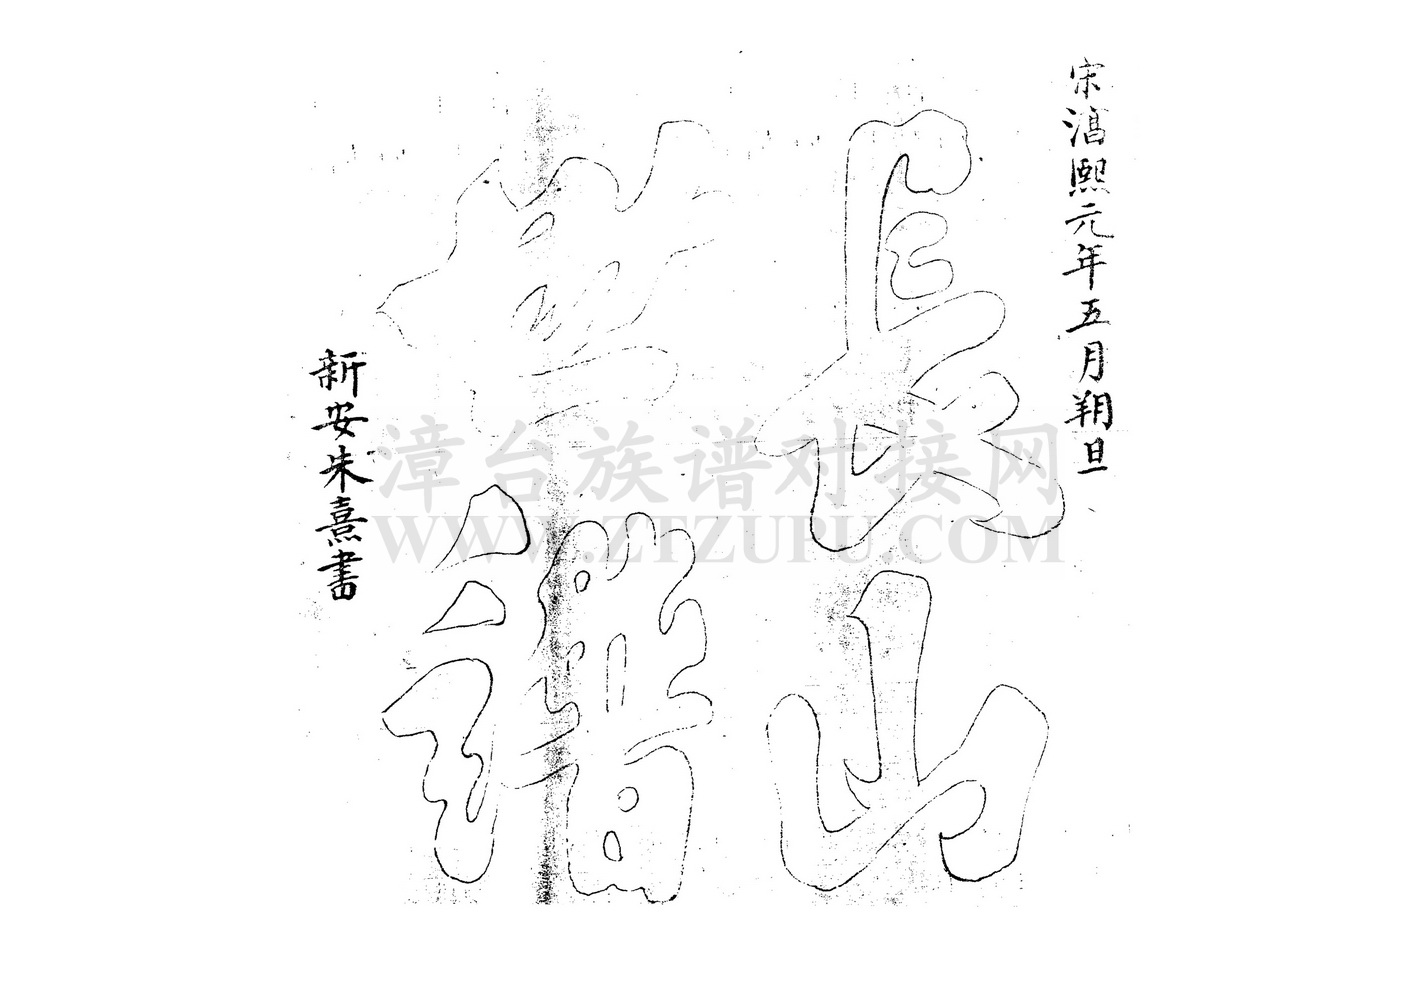 宋淳熙元年五月朔旦
長山
世譜
新安朱熹書
漳台族谱对接网
WWW.ZTZUPU.COM